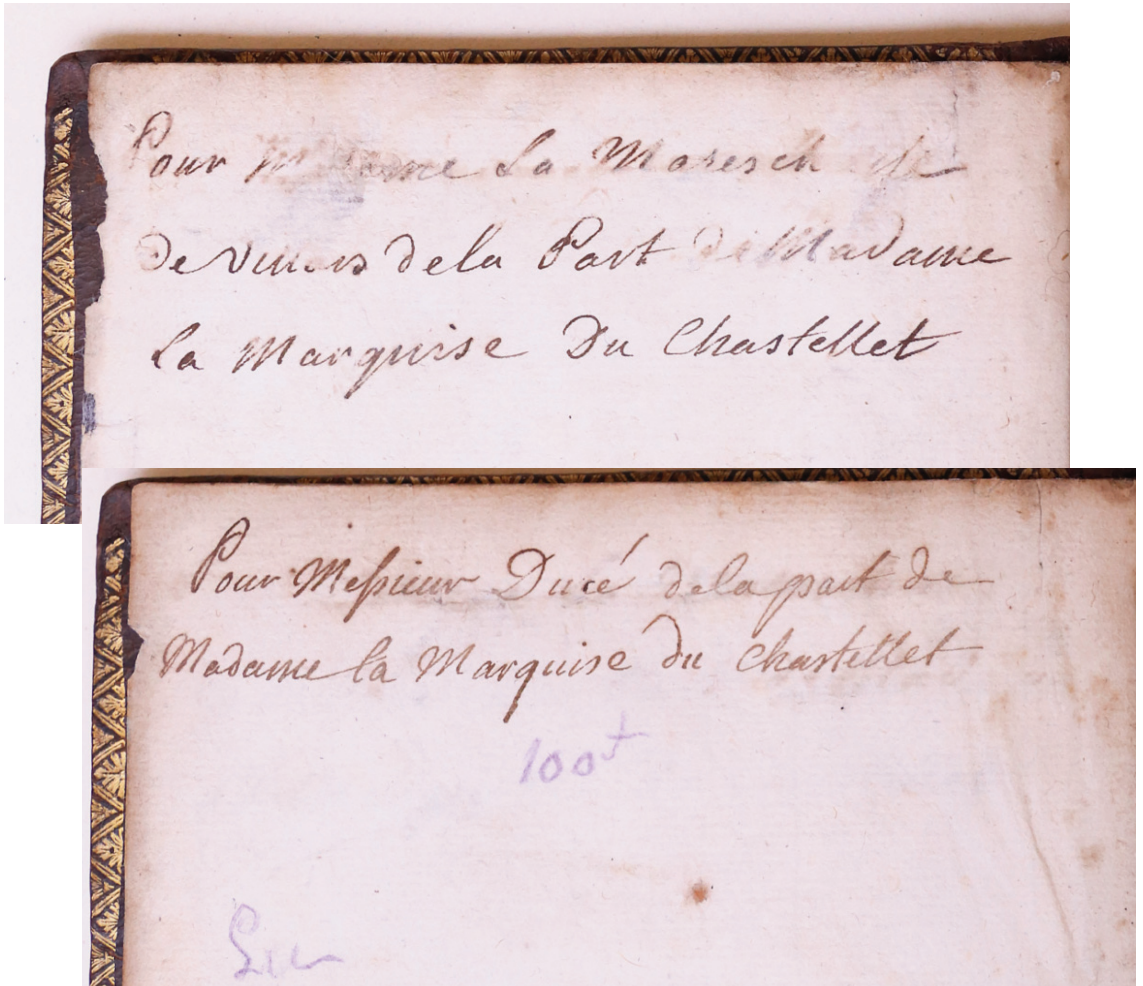 Pour Madame La Maresch
De de la Part de Madame
La Marquise Du Chastellet
Pour Messieur Ducé de la part de
Madame la Marquise du Chastellet
100